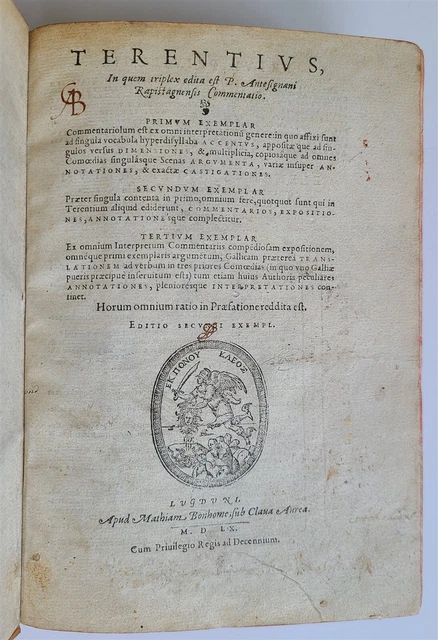 TERENTIVS,
In quem triplex edita est P. Antesignani
Rapistagnensis Commentatio.
PRIMVM EXEMPLAR
Commentariolum est ex omni interpretationũ genere: in quo affixi sunt
ad singula vocabula hyperdisyllaba ACCENTVS, appositæque ad sin-
gulos versus DIMENTIONES, &, multiplicia, copiosáque ad omnes
Comœdias singulásque Scenas ARGVMENTA, variæ insuper AN-
NOTATIONES, & exactæ CASTIGATIONES.
SECVNDVM EXEMPLAR
Præter singula contenta in primo, omnium ferè, quotquot sunt qui in
Terentium aliquid ediderunt, COMMENTARIOS, EXPOSITIO-
NES, ANNOTATIONESque complectitur.
TERTIVM EXEMPLAR
Ex omnium Interpretum Commentariis compēdiosam expositionem,
omnéque primi exemplaris argumētum, Gallicam præterea TRANS-
LATIONEM ad verbum in tres priores Comœdias (in quo vno Galliæ
pueris præcipuè inseruitum est) tum etiam huius Authoris peculiares
ANNOTATIONES, pleniorésque INTERPRETATIONES con-
tinet.
Horum omnium ratio in Præfatione reddita est.
EDITIO SECVNDI EXEMPL.
ΕΚ ΠΟΝΟΥ ΚΛΕΟΣ
LVGDVNI,
Apud Mathiam Bonhome, sub Claua Aurea.
M. D. LX.
Cum Priuilegio Regis ad Decennium.